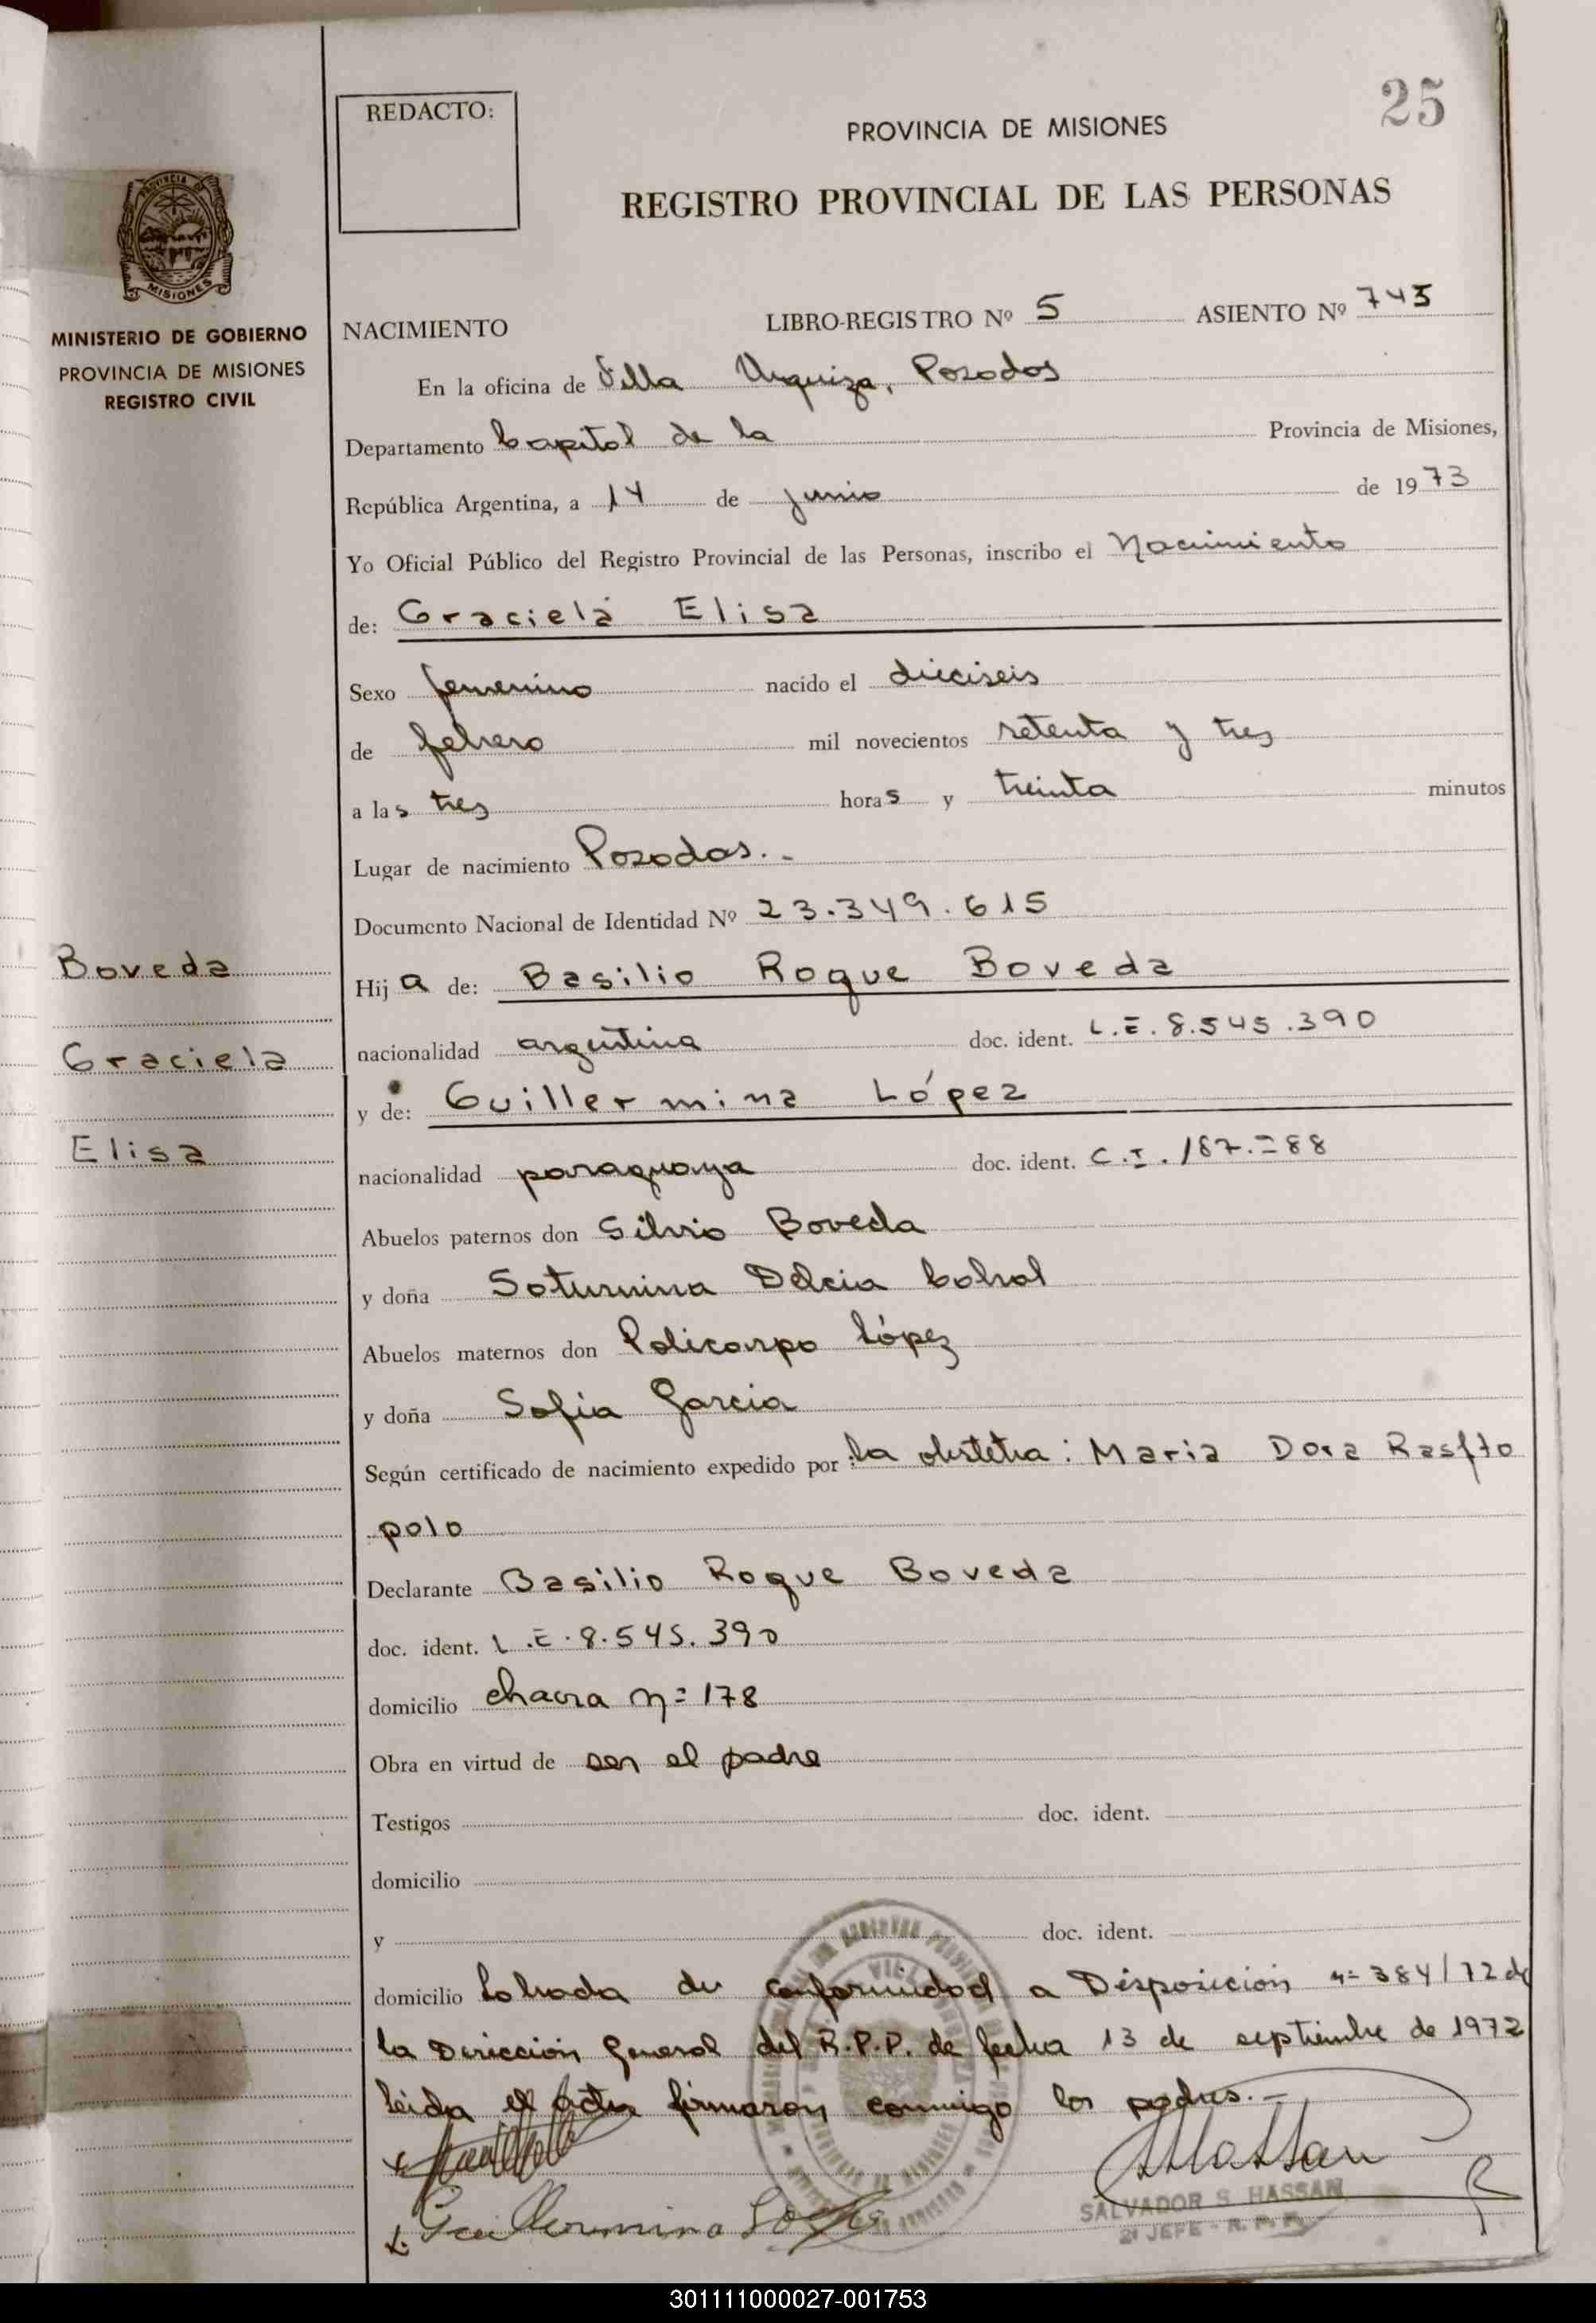 25
REDACTO:
PROVINCIA DE MISIONES
REGISTRO PROVINCIAL DE LAS PERSONAS
PROVINCIA DE
MISIONES
MINISTERIO DE GOBIERNO
PROVINCIA DE MISIONES
REGISTRO CIVIL
NACIMIENTO LIBRO-REGISTRO Nº 5 ASIENTO Nº 745
En la oficina de Villa Urquiza, Posadas
Departamento Capital de la Provincia de Misiones,
República Argentina, a 14 de junio de 1973
Yo Oficial Público del Registro Provincial de las Personas, inscribo el Nacimiento
de: Graciela Elisa
Sexo femenino nacido el dieciseis
de febrero mil novecientos setenta y tres
a las tres horas y treinta minutos
Lugar de nacimiento Posadas.-
Documento Nacional de Identidad Nº 23.349.615
Boveda
Graciela
Elisa
Hija de: Basilio Roque Boveda
nacionalidad argentina doc. ident. L.E. 8.545.390
y de: Guillermina López
nacionalidad paraguaya doc. ident. C.I.
Abuelos paternos don Silvio Boveda
y doña Saturnina Delcia Cabral
Abuelos maternos don Policarpo López
y doña Sofia Garcia
Según certificado de nacimiento expedido por: la obstetra: Maria Dora
polo
Declarante Basilio Roque Boveda
doc. ident. L.E. 8.545.390
domicilio chacra n= 178
Obra en virtud de ser el padre
Testigos doc. ident.
domicilio
y doc. ident.
domicilio Labrada de conformidad a Disposición n= 384/72 de
la Dirección General del R.P.P. de fecha 13 de septiembre de 1972
leida el acta firmaron conmigo los padres.-
Guillermina López
SALVADOR S. HASSAN
2º JEFE - R. P. P.
301111000027-001753